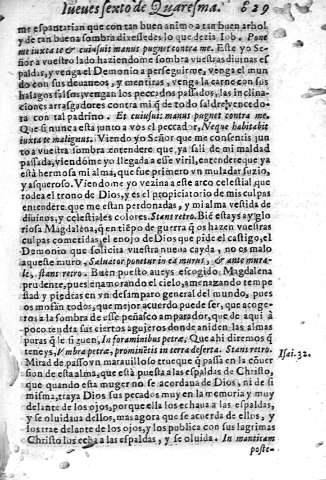 Iueues sexto de Quaresma. 829
me espantarian que con tan buen animo a tan buen arbol,
y de tan buena sombra dixessedes lo que dezia Iob. Pone
me iuxta te & cuiusuis manus pugnet contra me. Este yo Se-
ñor a vuestro lado haziendome sombra vuestras diuinas es
paldas, y venga el Demonio a perseguirme, venga el mun
do con sus deuaneos, y mentiras, venga la carne con sus
halagos falsos, vengan los peccados passados, las inclina
ciones arrasgadores contra mi q̃ de todo saldre vencedo-
ra con tal padrino. Et cuiusuis manus pugnet contra me.
Que si nunca esta junto a vos el peccador, Neque habitabit
iuxta te malignus. Viendo yo Señor que me consentis jun
to a vuestra sombra entendere que ya sali de mi maldad
passada, viendome yo llegada a esse viril, entendere que ya
està hermosa mi alma, que fue primero vn muladar suzio,
y asqueroso. Viendome yo vezina a este arco celestial que
rodea el trono de Dios, y es el propiciatorio de mis culpas
entendere que me estan perdonadas, y mi alma vestida de
diuinos, y celestiales colores. Stans retro. Biẽ estays ay glo
riosa Magdalena, que en tiẽpo de guerra q̃ os hazen vuestras
culpas cometidas, el enojo de Dios que pide el castigo, el
Demonio que solicita vuestra nueua cayda, no es malo
aquesse muro, Saluator ponetur in ea murus, & ante mura-
le, stans retro. Buen puesto aueys escogido Magdalena
prudente, pues enamorando el cielo, amenazando tempe
stad y piedras en vn desamparo general del mundo, pues
os mofan todos, que mejor acuerdo puede ser, que acoge-
ros a la sombra de esse peñasco amparador, que de aqui à
poco tendra sus ciertos agujeros donde aniden las almas
puras q̃ le siguen, In foraminibus petræ. Que ahi diremos q̃
teneys, Vmbra petræ, prominentis in terra deserta. Stans retro.
Isai. 32.
Mirad de passo vn marauilloso trueque q̃ passa en la cõuer
sion de esta alma, que està puesta a las espaldas de Christo,
que quando esta muger no se acordaua de Dios, ni de si
misma, traya Dios sus pecados muy en la memoria y muy
delante de los ojos, porque ella los echaua a las espaldas,
y se oluidaua dellos, mas agora que se acuerda de ellos, y
los trae delante de los ojos, y los publica con sus lagrimas
Christo los echa a las espaldas, y se oluida. In manticam
poste-